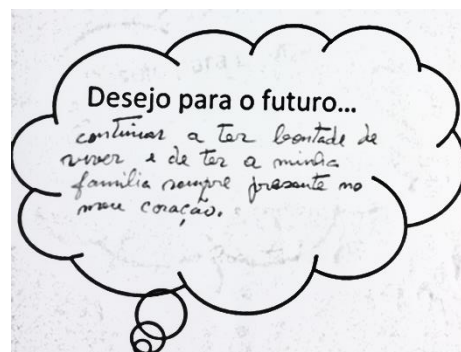 Desejo para o futuro...
continuar a ter bontade de
viver e de ter a minha
familia sempre presente no
meu coração.